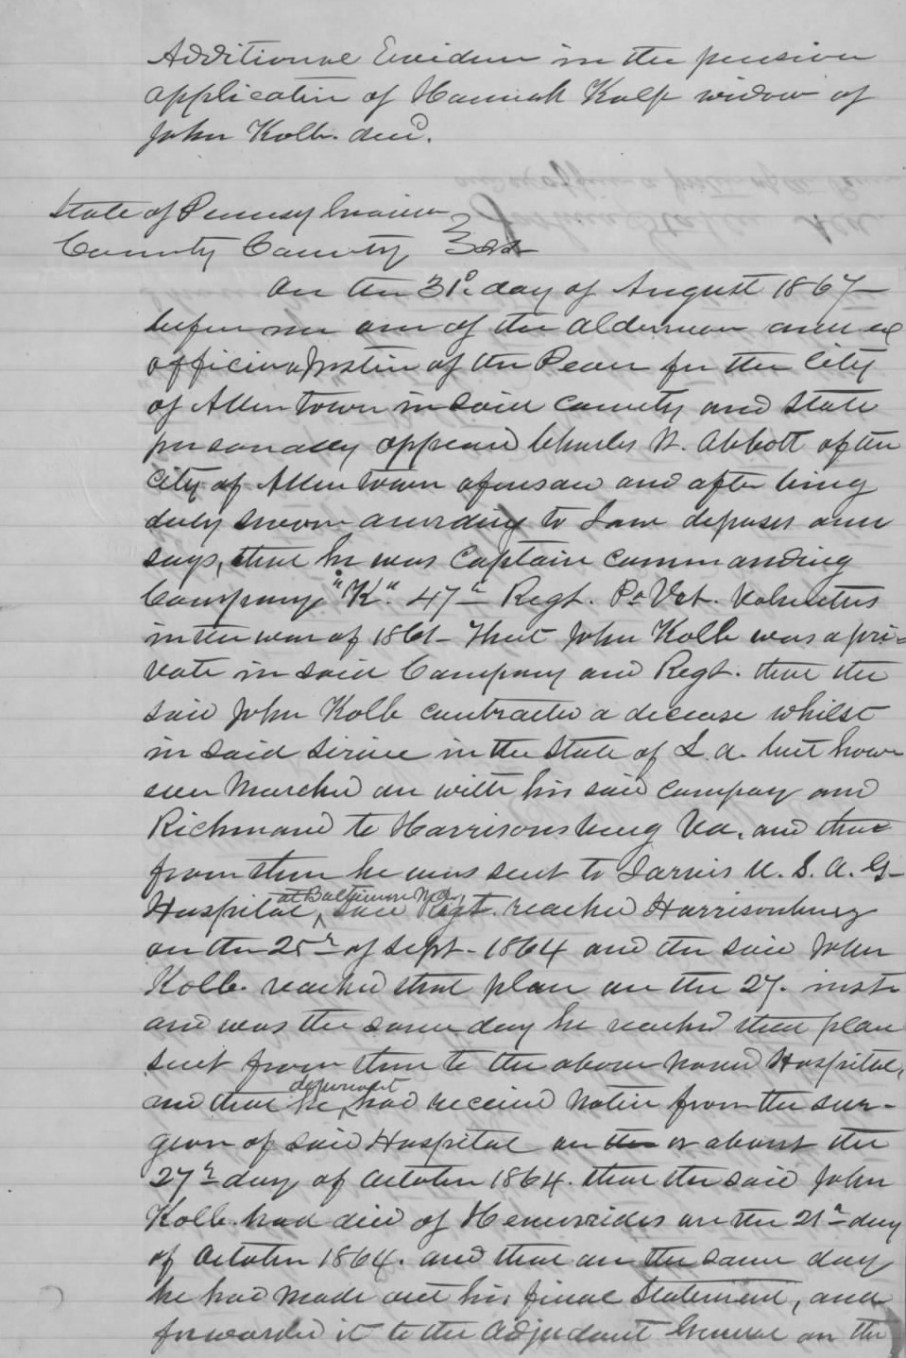 Additional Evidence in the pension
application of Hannah Kolb widow of
John Kolb. decd.
State of Pennsylvania
County County } ss
On the 31st. day of August 1867
before me one of the aldermen and ex
officio Justice of the Peace for the City
of Allentown in said County and State
personally appeared Charles W. Abbott of the
City of Allentown aforesaid and after being
duly sworn according to Law deposes and
says, that he was Captain commanding
Company "K". 47th Regt. Pa Vet. Volunteers
in the war of 1861 - That John Kolb was a pri-
vate in said Company and Regt. that the
said John Kolb contracted a decease whilst
in said Service in the State of L.a. but how
ever Marched on with his said company and
Richmond to Harrisonsburg Va. and that
from then he was sent to Jarvis U. S. A. G-
Hospital, at Baltimore Md, said Regt. reached Harrisonburg
on the 25th of Sept - 1864 and the said John
Kolb. reached that place on the 27. inst
and was the same day he reached that place
sent from then to the above named Hospital,
and that he, deponent had received notice from the sur-
geon of said Hospital on the or about the
27th day of October 1864. that the said John
Kolb. had died of Hemorrides on the 21st day
of October 1864. and that on the same day
he had made out his final Statement, and
forwarded it to the Adjudant General on the